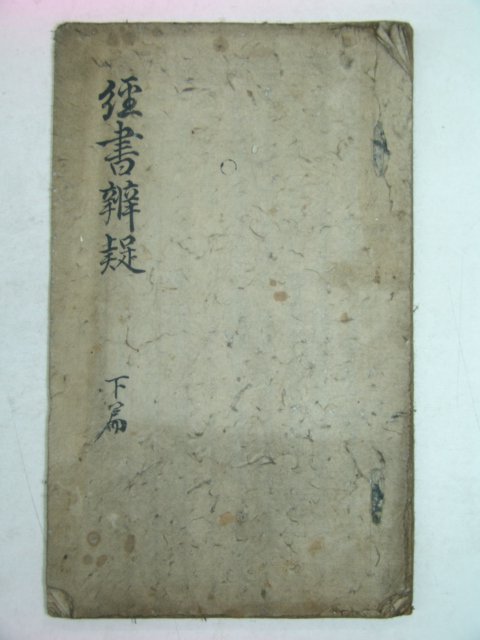 經書辨疑
下篇